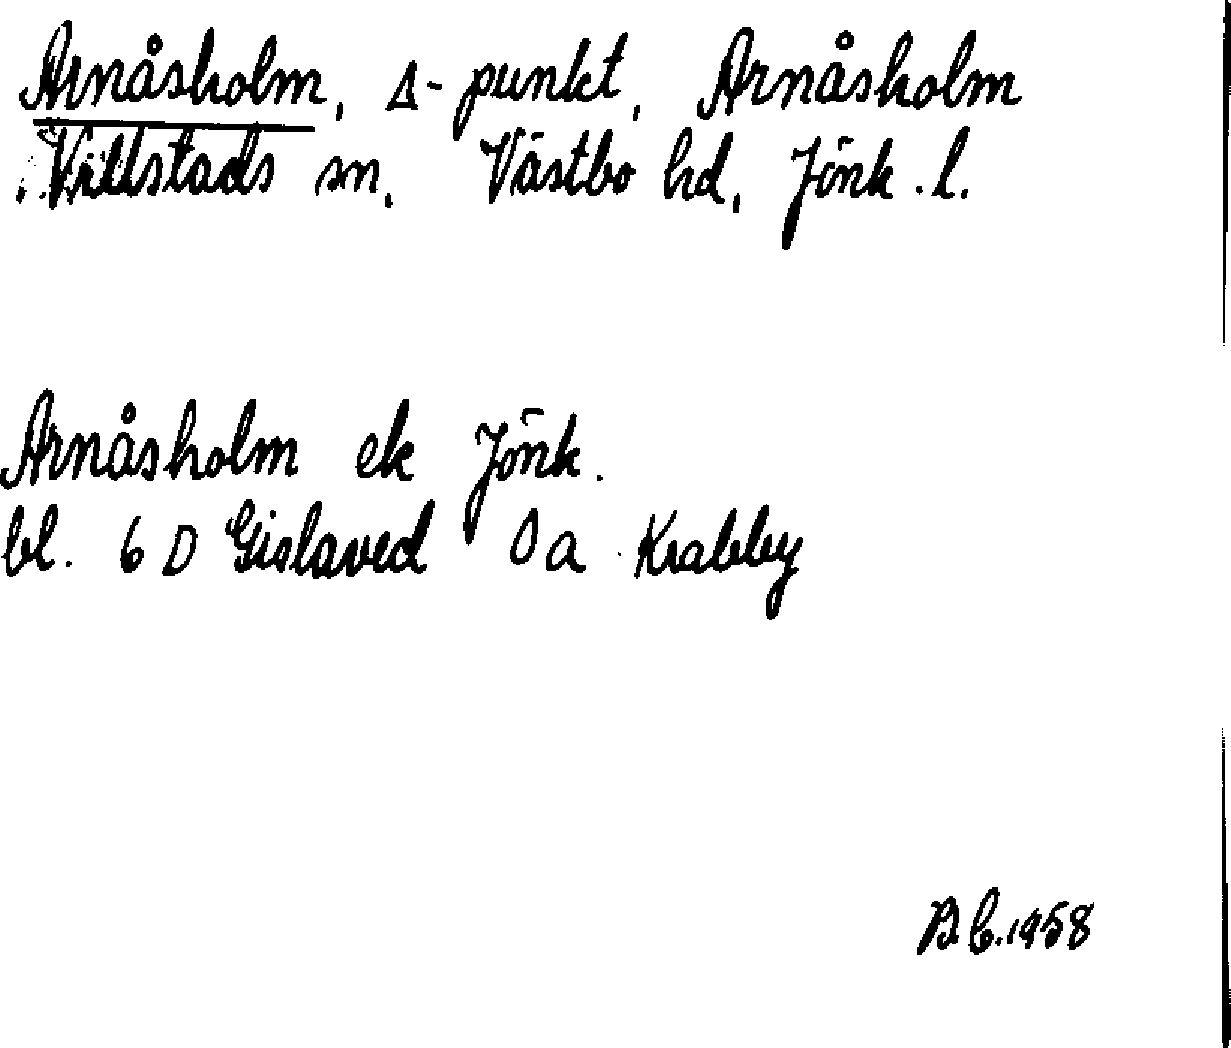 Arnåsholm, Δ-punkt, Arnåsholm
Villstads sn, Västbo hd, Jönk. l.
Arnåsholm ek Jönk.
bl. 6 D Gislaved 0 a Krabby
B.C. 1958